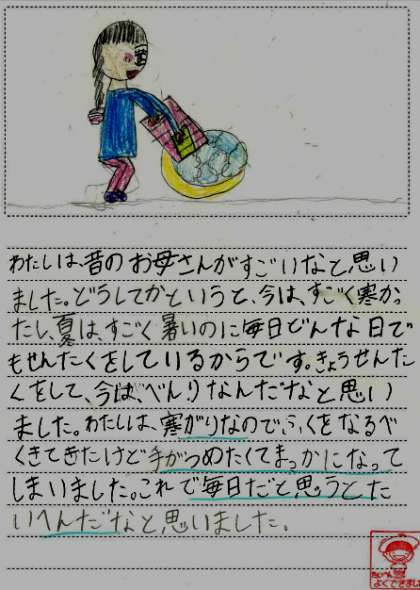 わたしは、昔のお母さんがすごいなと思い
ました。どうしてかというと、今は、すごく寒かっ
たし、夏は、すごく暑いのに毎日どんな日で
もせんたくをしているからです。きょうせんた
くをして、今は、べんりなんだなと思い
ました。わたしは、寒がりなので、ふくをなるべ
くきてきたけど手がつめたくてまっかになって
しまいました。これで毎日だと思うとたい
へんだなと思いました。
たいへん
よくできました